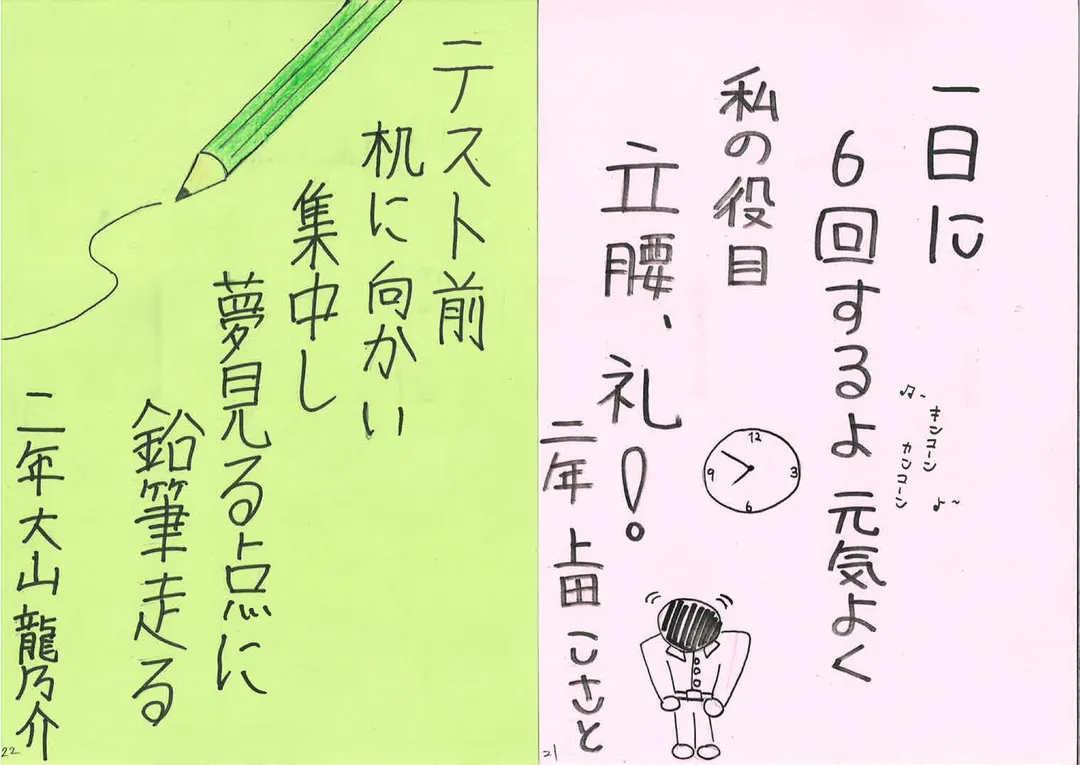 一日に
6回するよ 元気よく
私の役目
立腰、礼!
二年 上田 こさと
♫~ キンコーン
カンコーン ♪~
12
3
6
9
21
テスト前
机に向かい
集中し
夢見る点に
鉛筆走る
二年 大山 龍乃介
22